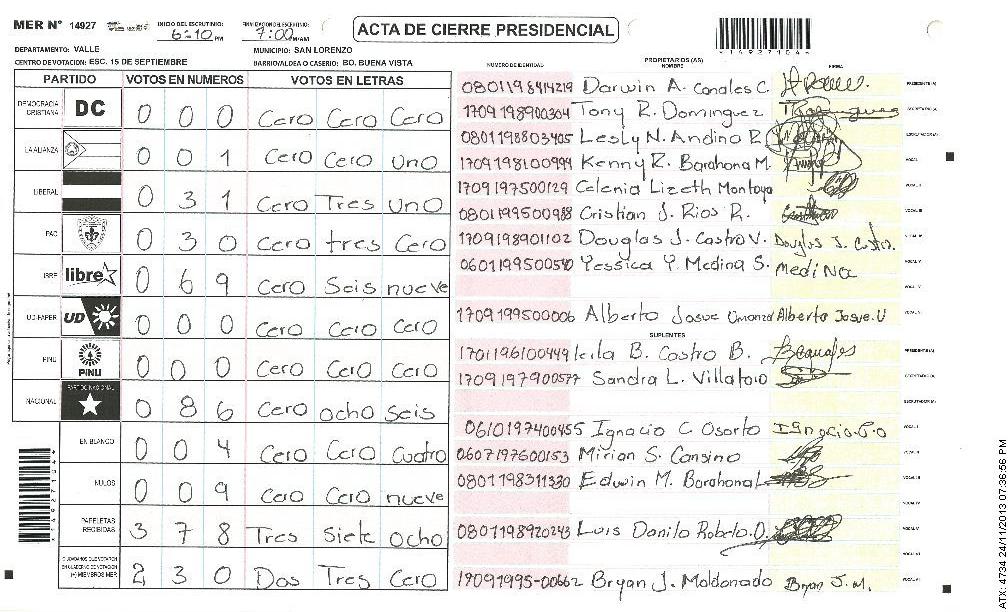 MER N° 14927 INICIO DEL ESCRUTINIO: 6:10 PM FINALIZACION DEL ESCRUTINIO: 7:00 PM/AM ACTA DE CIERRE PRESIDENCIAL
DEPARTAMENTO: VALLE MUNICIPIO: SAN LORENZO
CENTRO DE VOTACION: ESC. 15 DE SEPTIEMBRE BARRIO/ALDEA O CASERIO: BO. BUENA VISTA
PARTIDO VOTOS EN NUMEROS VOTOS EN LETRAS
DEMOCRACIA CRISTIANA DC 0 0 0 Cero Cero Cero
LA ALIANZA 0 0 1 Cero Cero uno
LIBERAL 0 3 1 Cero Tres uno
PAC 0 3 0 Cero tres Cero
LIBRE libre 0 6 9 Cero Seis nueve
UD-FAPER UD 0 0 0 Cero Cero Cero
PINU PINU 0 0 0 Cero Cero Cero
NACIONAL PARTIDO NACIONAL 0 8 6 Cero ocho seis
EN BLANCO 0 0 4 Cero Cero Cuatro
NULOS 0 0 9 Cero Cero nueve
PAPELETAS RECIBIDAS 3 7 8 Tres Siete ocho
CIUDADANOS QUE VOTARON EN CUADERNO DE VOTACION (+) MIEMBROS MER 2 3 0 Dos Tres Cero
PROPIETARIOS (AS)
NUMERO DE IDENTIDAD NOMBRE FIRMA
0801198414219 Darwin A. Canales C. PRESIDENTE(A)
1709198900304 Tony R. Dominguez SECRETARIO(A)
0801198803405 Lesly N. Andino R. ESCRUTADOR(A)
1709198100999 Kenny R. Barahona M. VOCAL I
1709197500129 Celenia Lizeth Montoya VOCAL II
0801199500988 Cristian J. Rios R. VOCAL III
1709198901102 Douglas J. Castro V. Douglas J. Castro. VOCAL IV
0601199500540 Yessica Y. Medina S. Medina VOCAL V
1709199500006 Alberto Josue Umanzor Alberto Josue.U
SUPLENTES
1701196100449 leila B. Castro B. PRESIDENTE(A)
1709197900577 Sandra L. Villatoro SECRETARIO(A)
ESCRUTADOR(A)
0610197400455 Ignacio C Osorto VOCAL I
0607197600153 Mirian S. Cansino VOCAL II
0801198311330 Edwin M. Barahona L VOCAL III
0801198920243 Luis Danilo Robelo.O. VOCAL V
17091995-00662 Bryan J. Maldonado Bryan J. M.
149271044
ATX: 4734 24/11/2013 07:36:56 PM